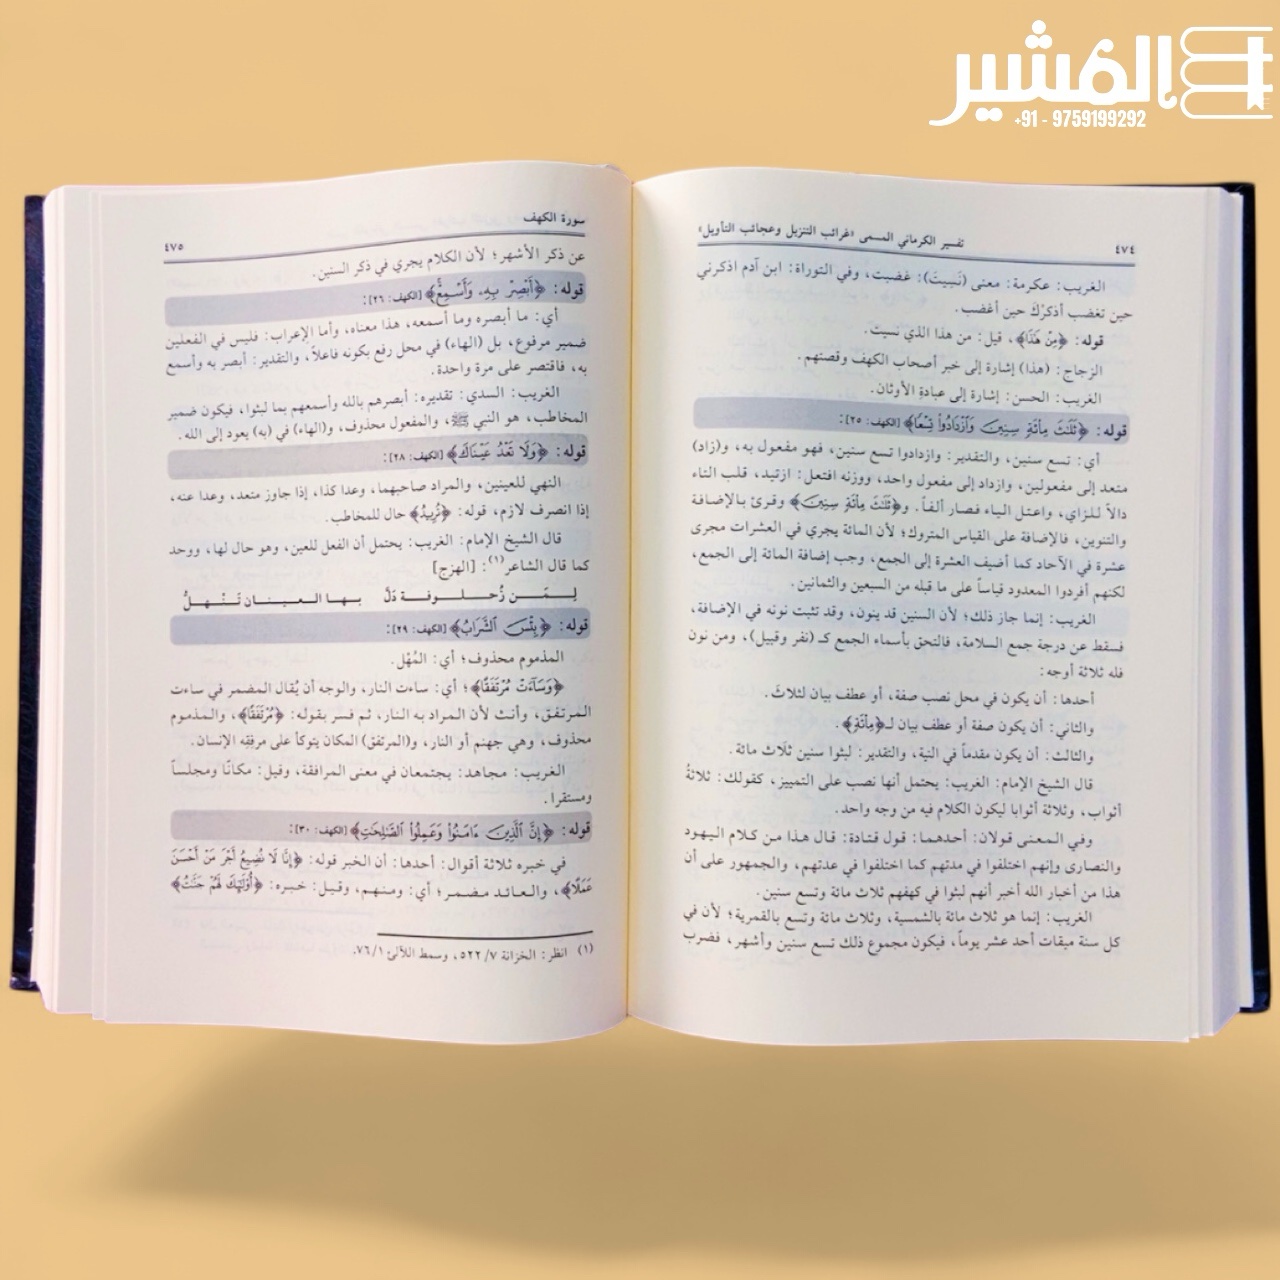 المشير
+91 - 9759199292
٤٧٤
تفسير الكرماني المسمى «غرائب التنزيل وعجائب التأويل»
الغريب: عكرمة: معنى (نَسِيتَ): غضبت، وفي التوراة: ابن آدم اذكرني
حين تغضب أذكرْكَ حين أغضب.
قوله: ﴿مِنْ هَذَا﴾، قيل: من هذا الذي نسيت.
الزجاج: (هذا) إشارة إلى خبر أصحاب الكهف وقصتهم.
الغريب: الحسن: إشارة إلى عبادةِ الأوثان.
قوله: ﴿ثَلَٰثَ مِاْئَةٖ سِنِينَ وَٱزْدَادُواْ تِسْعًا﴾ [الكهف: ٢٥]:
أي: تسع سنين، والتقدير: وازدادوا تسع سنين، فهو مفعول به، و(زاد)
متعد إلى مفعولين، وازداد إلى مفعول واحد، ووزنه افتعل: ازتيد، قلب التاء
دالاً للزاي، واعتل الياء فصار ألفاً. و﴿ثَلَٰثَ مِاْئَةٖ سِنِينَ﴾ وقرئ بالإضافة
والتنوين، فالإضافة على القياس المتروك؛ لأن المائة يجري في العشرات مجرى
عشرة في الآحاد كما أضيف العشرة إلى الجمع، وجب إضافة المائة إلى الجمع،
لكنهم أفردوا المعدود قياساً على ما قبله من السبعين والثمانين.
الغريب: إنما جاز ذلك؛ لأن السنين قد ينون، وقد تثبت نونه في الإضافة،
فسقط عن درجة جمع السلامة، فالتحق بأسماء الجمع كـ (نفر وقبيل)، ومن نون
فله ثلاثة أوجه:
أحدها: أن يكون في محل نصب صفة، أو عطف بيان لثلاث.
والثاني: أن يكون صفة أو عطف بيان لـ﴿مِاْئَةٖ﴾.
والثالث: أن يكون مقدماً في النية، والتقدير: لبثوا سنين ثلاث مائة.
قال الشيخ الإمام: الغريب: يحتمل أنها نصب على التمييز، كقولك: ثلاثةُ
أثواب، وثلاثة أثوابا ليكون الكلام فيه من وجه واحد.
وفي المعنى قولان: أحدهما: قول قتادة: قال هذا من كلام اليهود
والنصارى وإنهم اختلفوا في مدتهم كما اختلفوا في عدتهم، والجمهور على أن
هذا من أخبار الله أخبر أنهم لبثوا في كهفهم ثلاث مائة وتسع سنين.
الغريب: إنما هو ثلاث مائة بالشمسية، وثلاث مائة وتسع بالقمرية؛ لأن في
كل سنة ميقات أحد عشر يوماً، فيكون مجموع ذلك تسع سنين وأشهر، فضرب
سورة الكهف
٤٧٥
عن ذكر الأشهر؛ لأن الكلام يجري في ذكر السنين.
قوله: ﴿أَبْصِرْ بِهِۦ وَأَسْمِعْ﴾ [الكهف: ٢٦]:
أي: ما أبصره وما أسمعه، هذا معناه، وأما الإعراب: فليس في الفعلين
ضمير مرفوع، بل (الهاء) في محل رفع بكونه فاعلاً، والتقدير: أبصر به وأسمع
به، فاقتصر على مرة واحدة.
الغريب: السدي: تقديره: أبصرهم بالله وأسمعهم بما لبثوا، فيكون ضمير
المخاطب، هو النبي ﷺ، والمفعول محذوف، و(الهاء) في (به) يعود إلى الله.
قوله: ﴿وَلَا تَعْدُ عَيْنَاكَ﴾ [الكهف: ٢٨]:
النهي للعينين، والمراد صاحبهما، وعدا كذا، إذا جاوز متعد، وعدا عنه،
إذا انصرف لازم، قوله: ﴿تُرِيدُ﴾ حال للمخاطب.
قال الشيخ الإمام: الغريب: يحتمل أن الفعل للعين، وهو حال لها، ووحد
كما قال الشاعر(١): [الهزج]
لِمَن زُحلوفة دَلُّ بها العينان تَنْهلُّ
قوله: ﴿بِئْسَ ٱلشَّرَابُ﴾ [الكهف: ٢٩]:
المذموم محذوف؛ أي: المُهْل.
﴿وَسَآءَتْ مُرْتَفَقًا﴾؛ أي: ساءت النار، والوجه أن يُقال المضمر في ساءت
المرتفق، وأنث لأن المراد به النار، ثم فسر بقوله: ﴿مُرْتَفَقًا﴾، والمذموم
محذوف، وهي جهنم أو النار، و(المرتفق) المكان يتوكأ على مرفقِه الإنسان.
الغريب: مجاهد: يجتمعان في معنى المرافقة، وقيل: مكانًا ومجلساً
ومستقرا.
قوله: ﴿إِنَّ ٱلَّذِينَ ءَامَنُواْ وَعَمِلُواْ ٱلصَّٰلِحَٰتِ﴾ [الكهف: ٣٠]:
في خبره ثلاثة أقوال: أحدها: أن الخبر قوله: ﴿إِنَّا لَا نُضِيعُ أَجْرَ مَنْ أَحْسَنَ
عَمَلًا﴾، والعائد مضمر؛ أي: ومنهم، وقيل: خبره: ﴿أُوْلَٰٓئِكَ لَهُمْ جَنَّٰتُ﴾
(١) انظر: الخزانة ٥٢٢/٧، وسمط اللآلئ ٧٦/١.